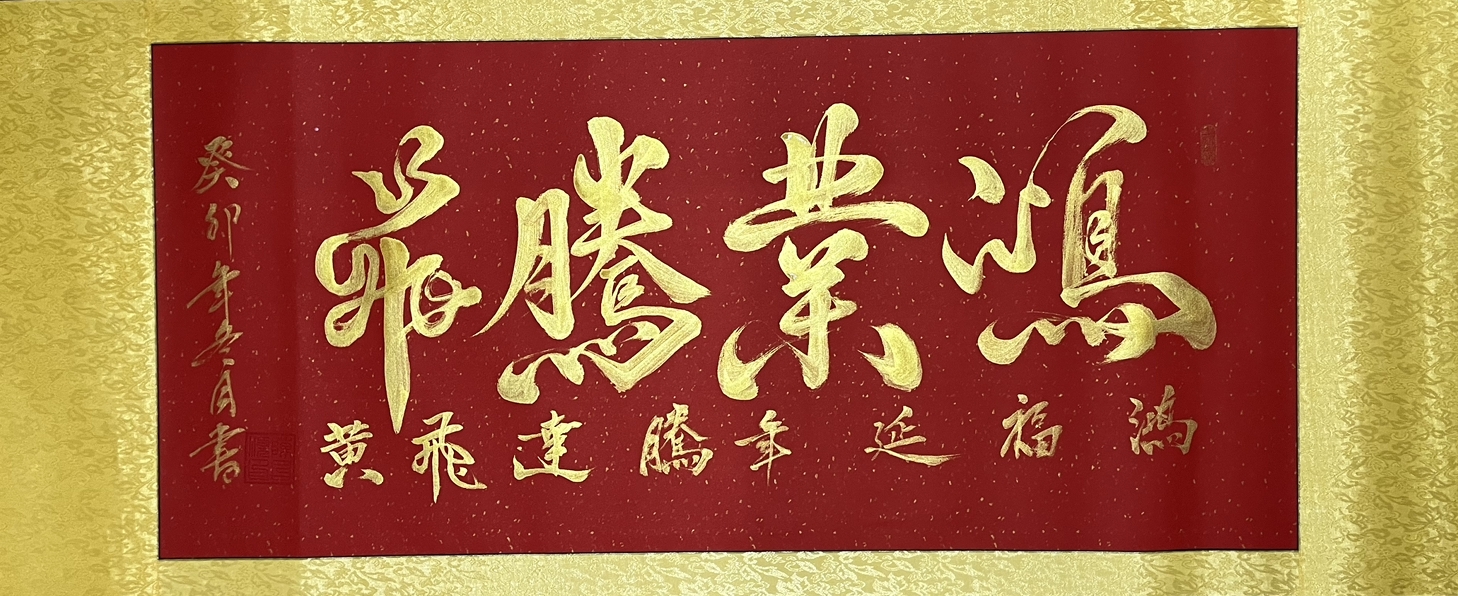 鴻業騰飛
鴻福延年騰達飛黃
癸卯年冬月書